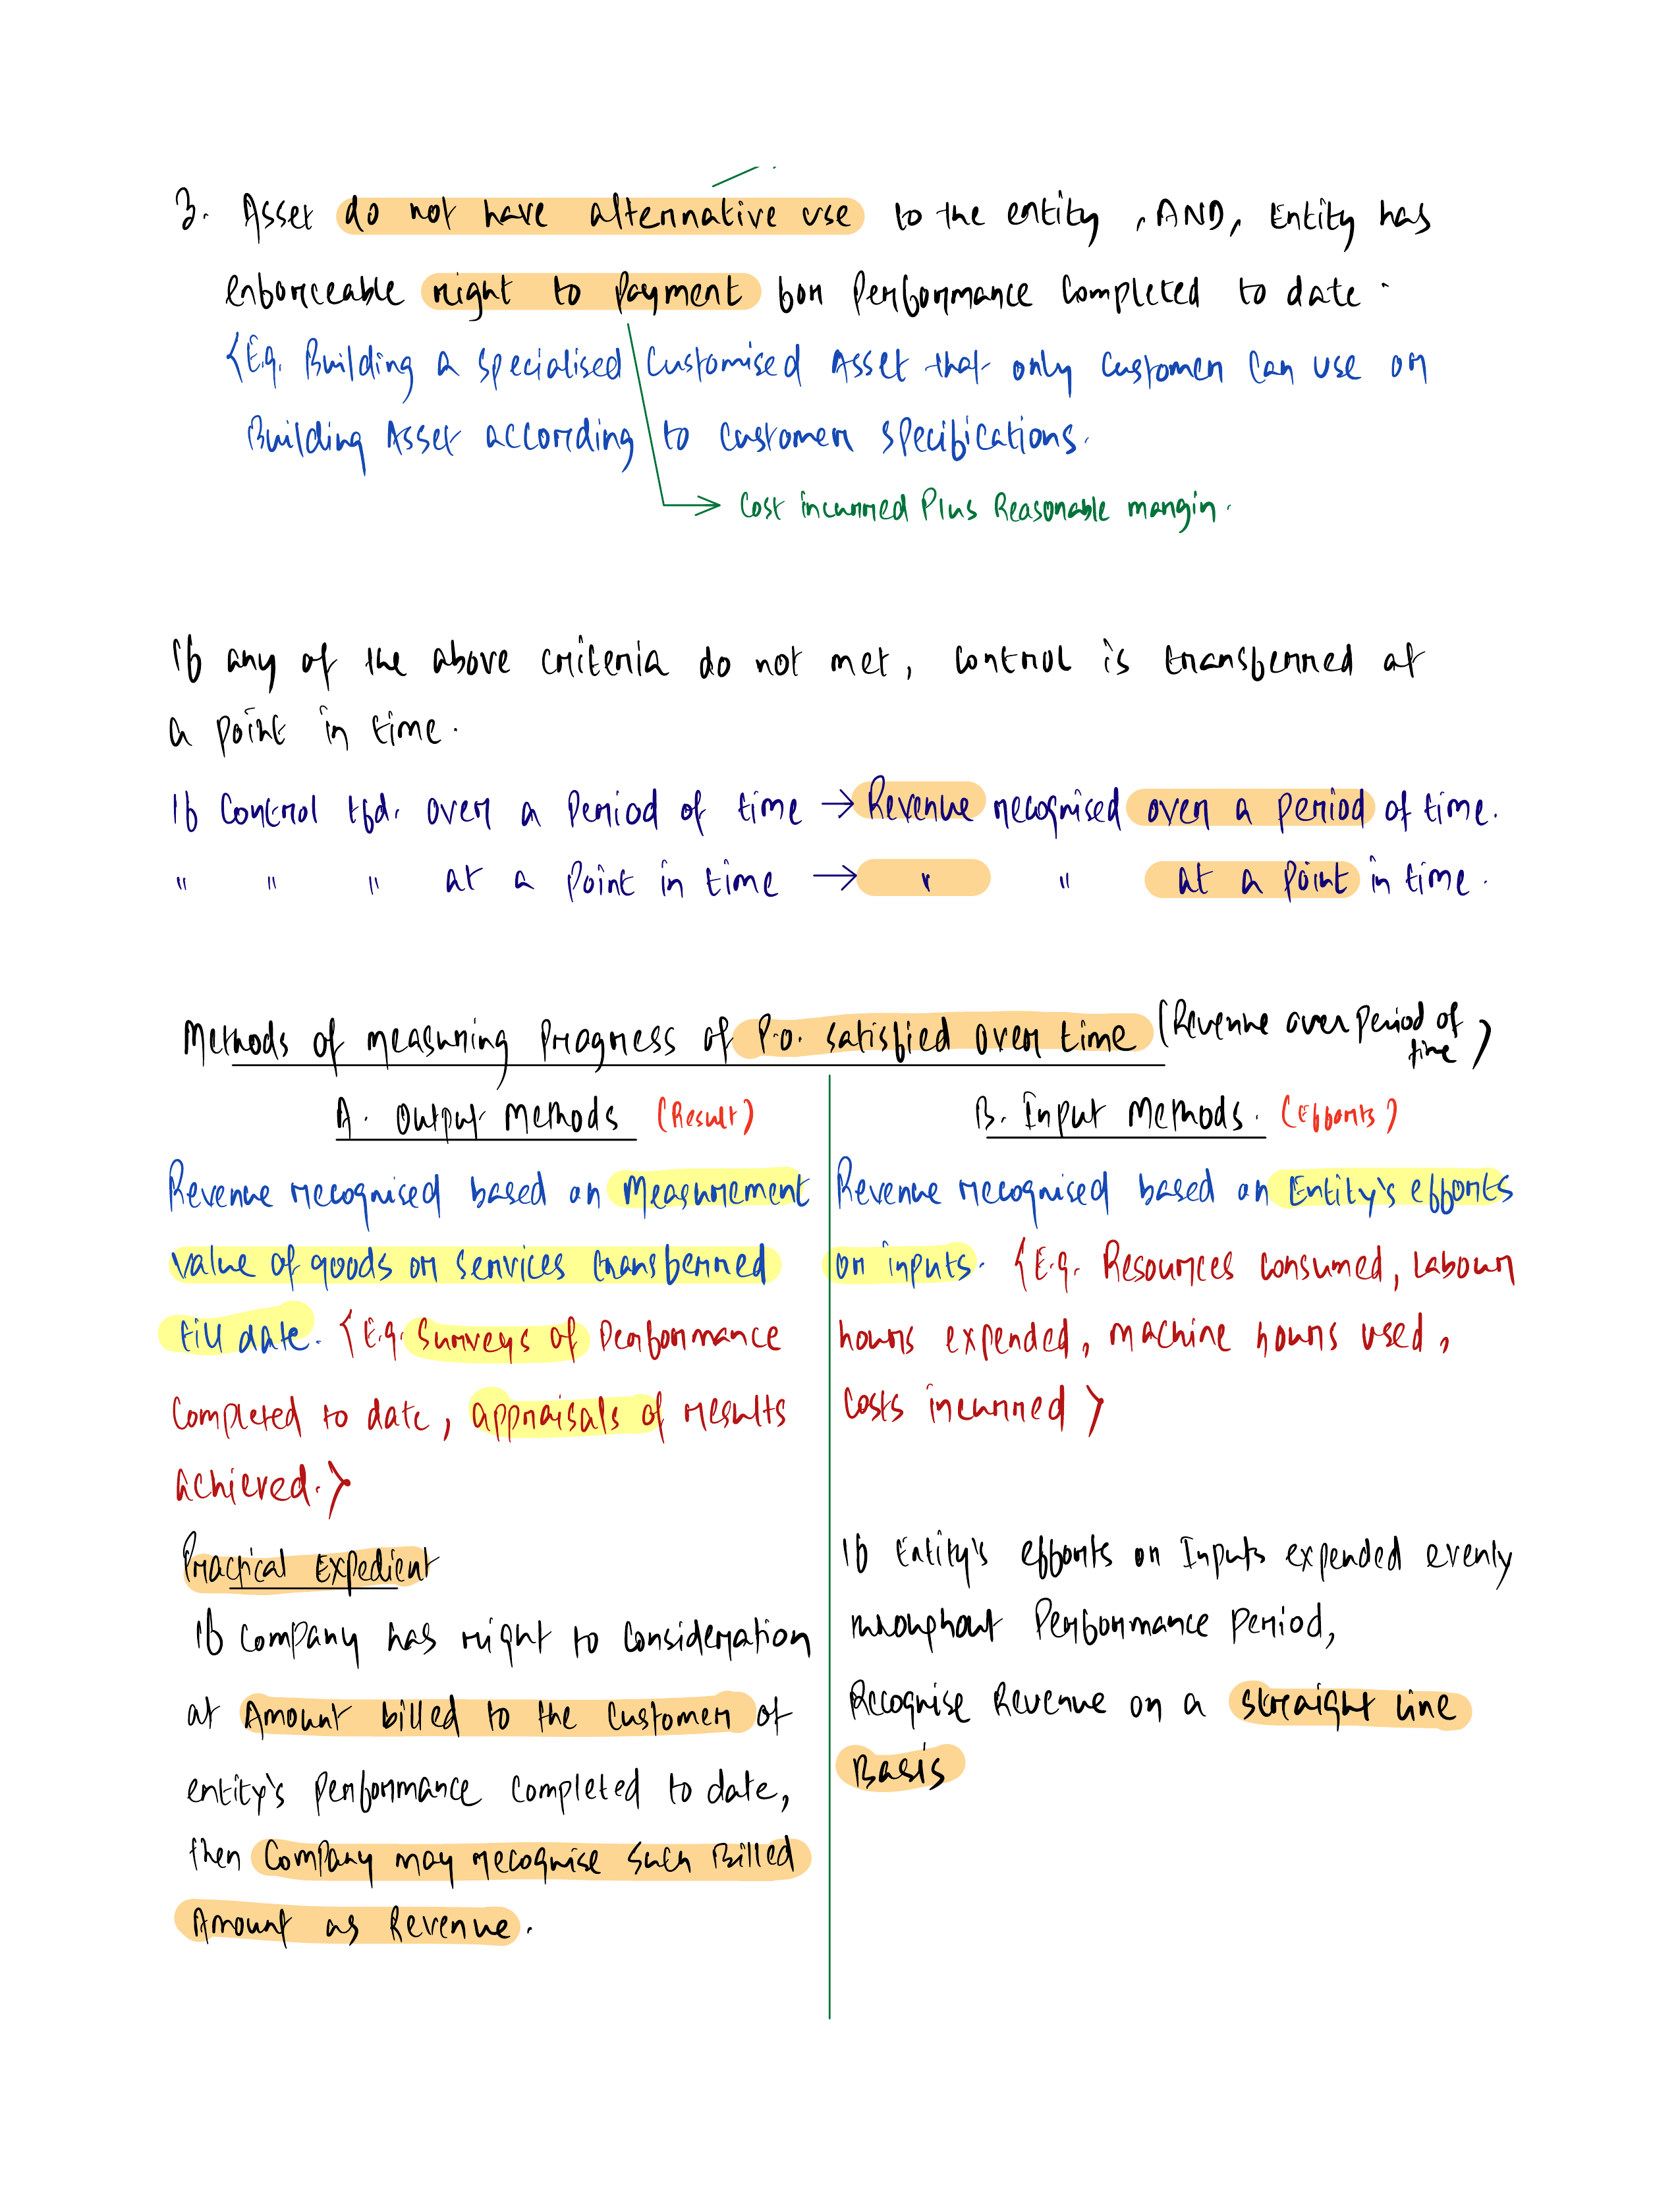 3. Asset do not have alternative use to the entity, AND, Entity has
enforceable right to Payment for Performance Completed to date.
{E.g. Building a Specialised Customised Asset that only Customer Can use or
Building Asset according to Customer Specifications.
→ Cost incurred Plus Reasonable margin.
If any of the above criteria do not met, control is transferred at
a point in time.
If Control tfd. over a Period of time → Revenue recognised over a period of time.
" " " at a Point in time → " " at a Point in time.
Methods of measuring Progress of P.O. satisfied over time (Revenue over period of
time)
A. Output Methods (Result)
Revenue recognised based on Measurement
value of goods or services transferred
till date. {E.g. Surveys of Performance
Completed to date, appraisals of results
achieved.}
Practical Expedient
If Company has right to Consideration
at Amount billed to the Customer of
entity's Performance Completed to date,
then Company may recognise Such Billed
Amount as Revenue.
B. Input Methods. (Efforts)
Revenue recognised based on Entity's efforts
or inputs. {E.g. Resources consumed, Labour
hours expended, machine hours used,
Costs incurred}
If Entity's efforts or Inputs expended evenly
throughout Performance Period,
Recognise Revenue on a straight Line
Basis